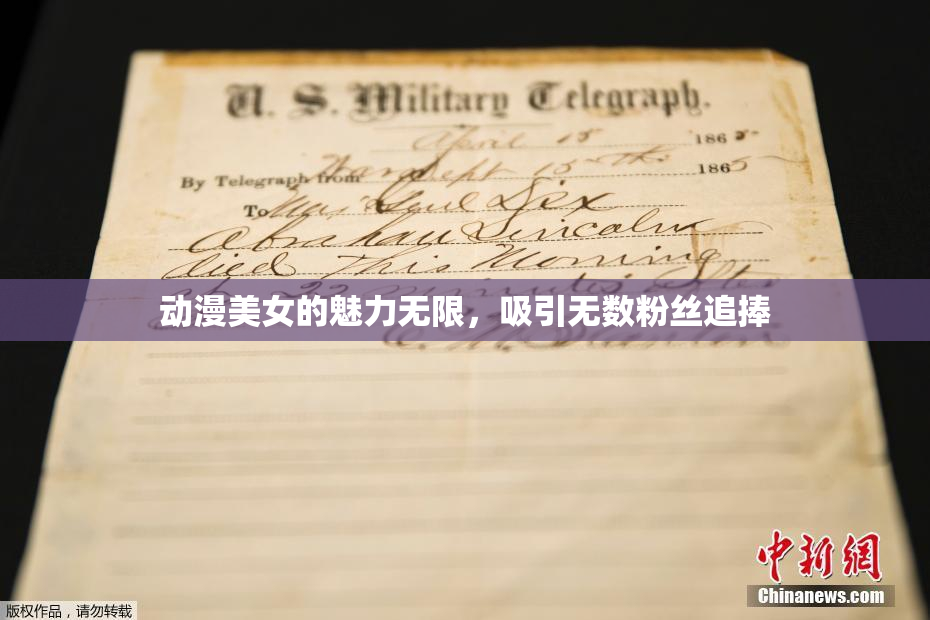 U. S. Military Telegraph.
April 15 1865
By Telegraph from War Dept 15th 1865
To Maj Genl Dix
Abraham Lincoln
died This Morning
at 22 minutes after
动漫美女的魅力无限，吸引无数粉丝追捧
E. M. Stanton
中新网
Chinanews.com
版权作品，请勿转载